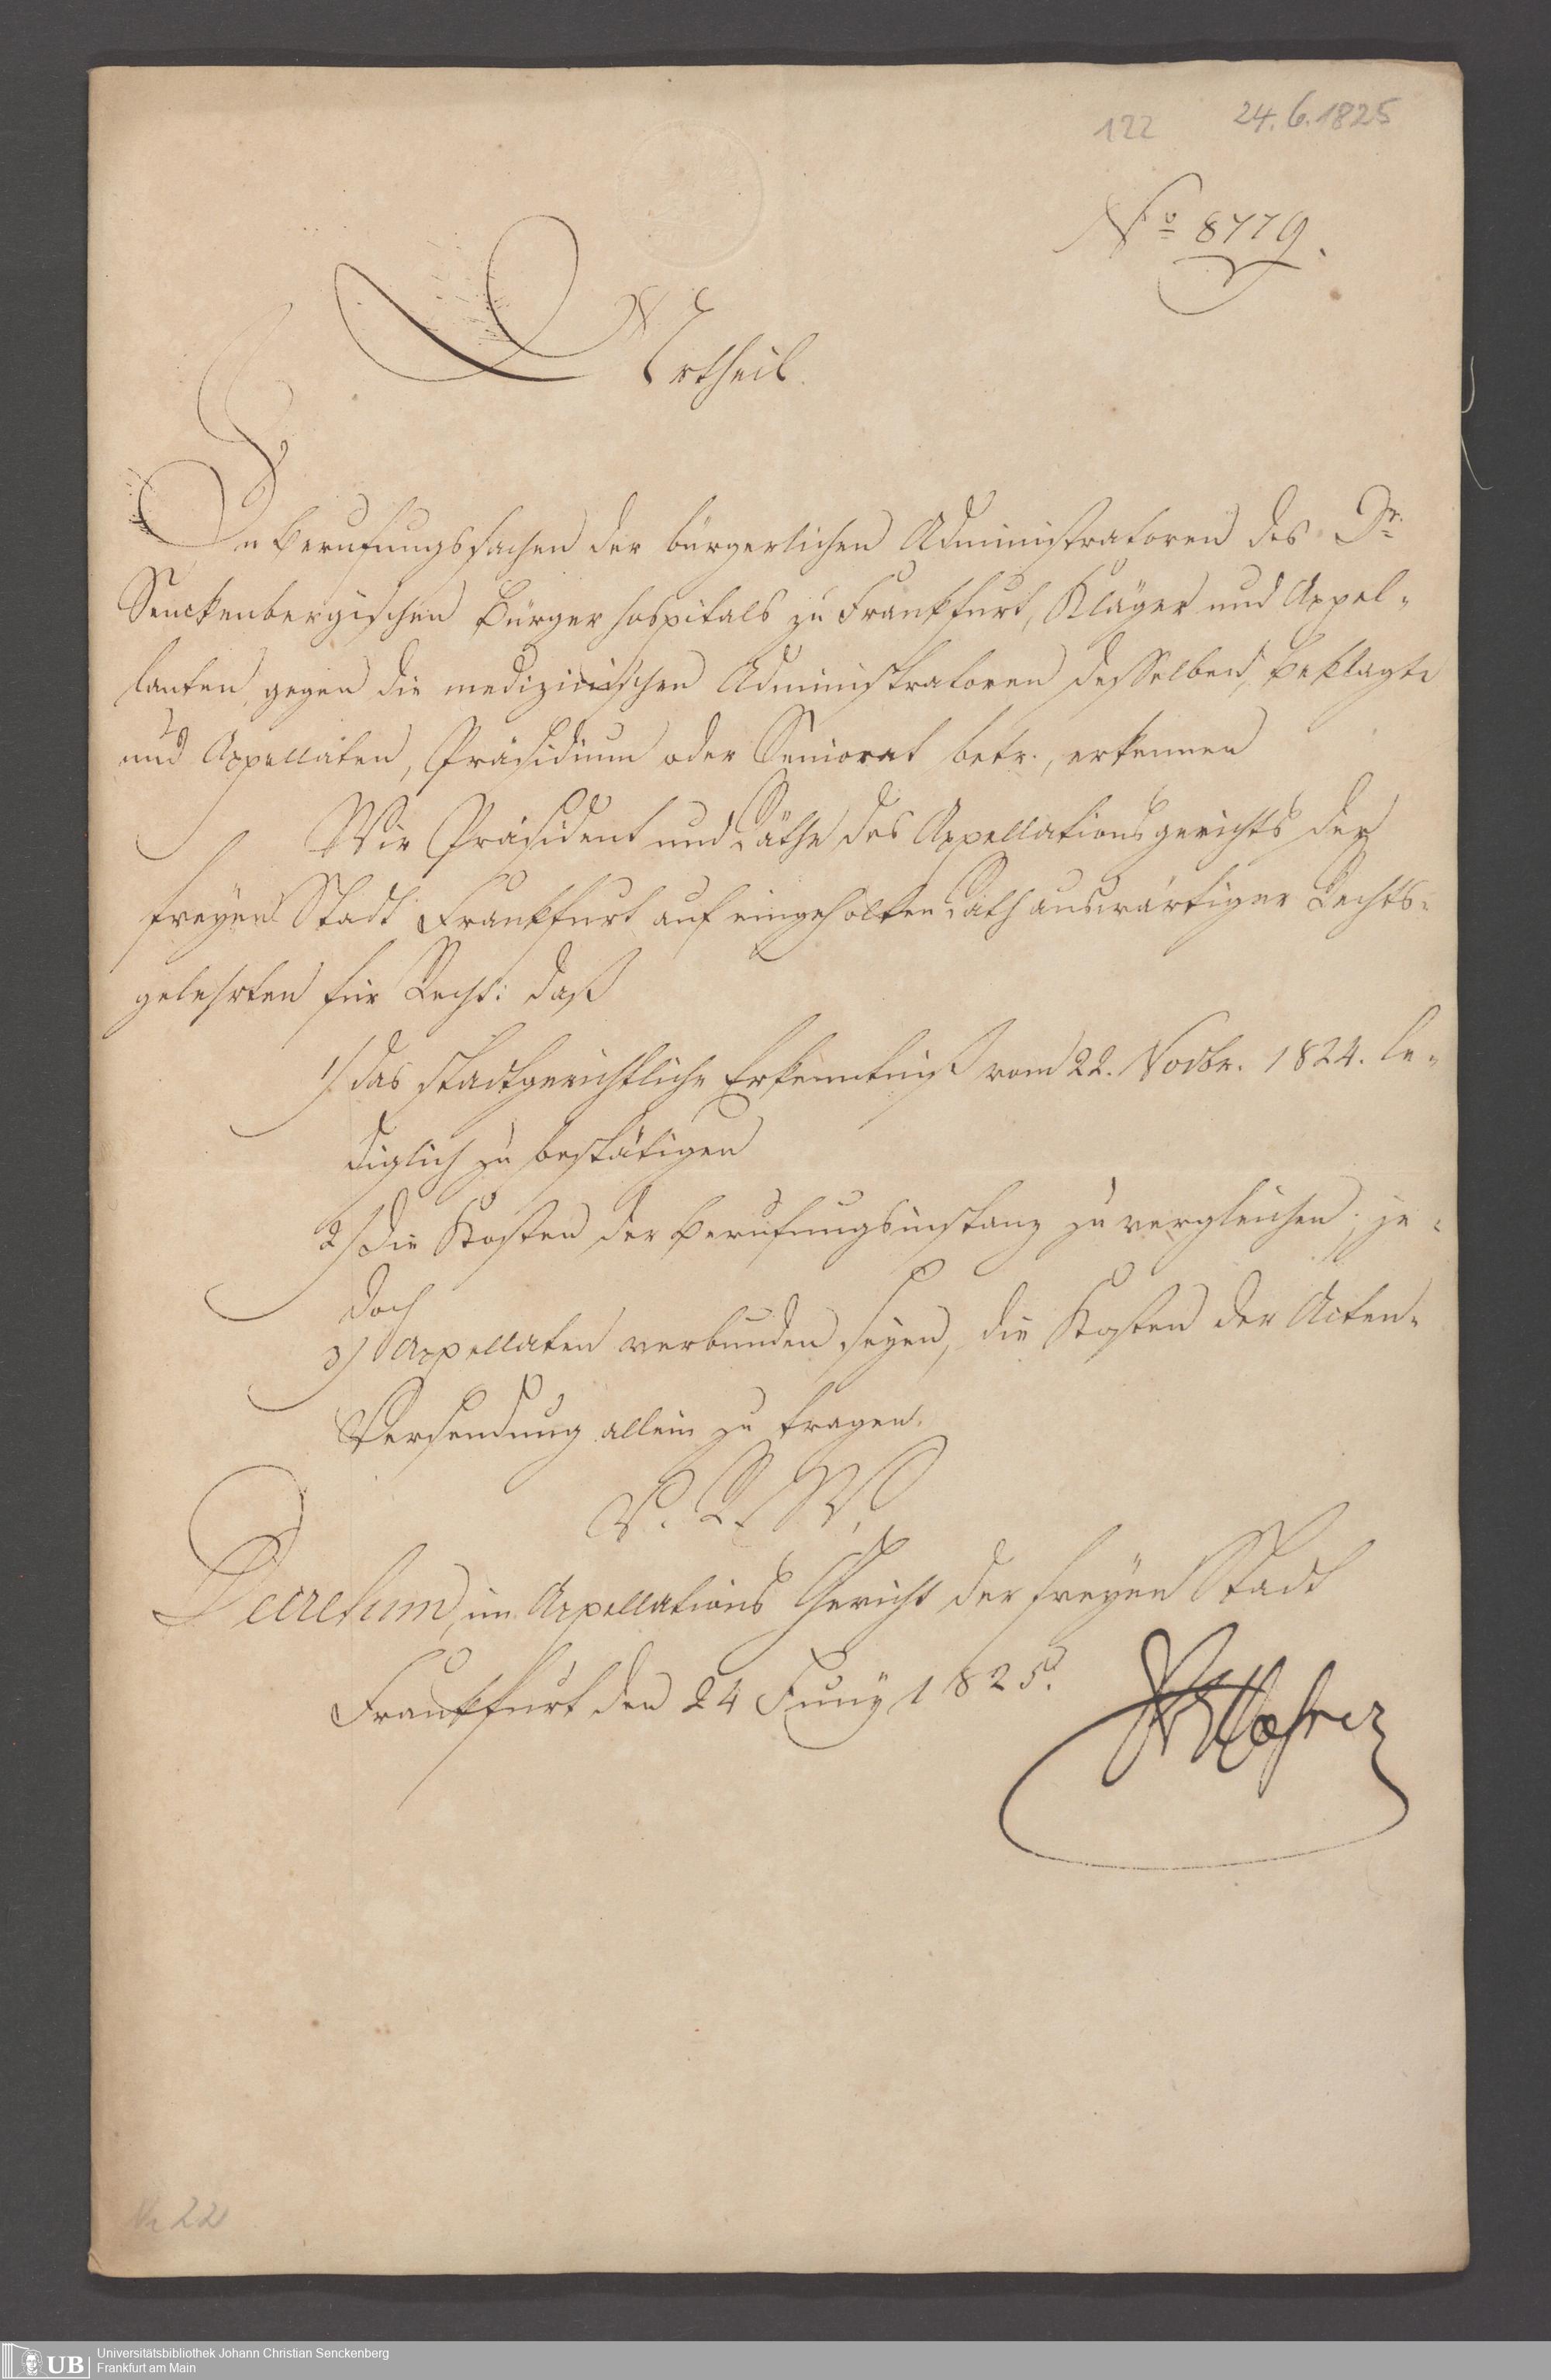 122 24. 6. 1825
No 8779.
Urtheil.
In Berufungssachen der bürgerlichen Administratoren des Dr.
Senckenbergischen Bürgerhospitals zu Frankfurt, Kläger und Appel-
lanten, gegen die medizinischen Administratoren desselben, Beklagte
und Appellaten, Präsidium oder Seniorat betr., erkennen
Wir Präsident und Räthe des Appellationsgerichts der
freyen Stadt Frankfurt auf eingeholten Rath auswärtiger Rechts-
gelehrten für Recht: daß
1) das stadtgerichtliche Erkenntniß vom 22. Novbr. 1824. le-
diglich zu bestätigen
2) die Kosten der Berufungsinstanz zu vergleichen; je-
doch
3) Appellaten verbunden seyen, die Kosten der Acten-
Versendung allein zu tragen.
V. R. W.
Decretum, im Appellations Gericht der freyen Stadt
Frankfurt den 24 Juny 1825.
Nr 22
UB Universitätsbibliothek Johann Christian Senckenberg
Frankfurt am Main